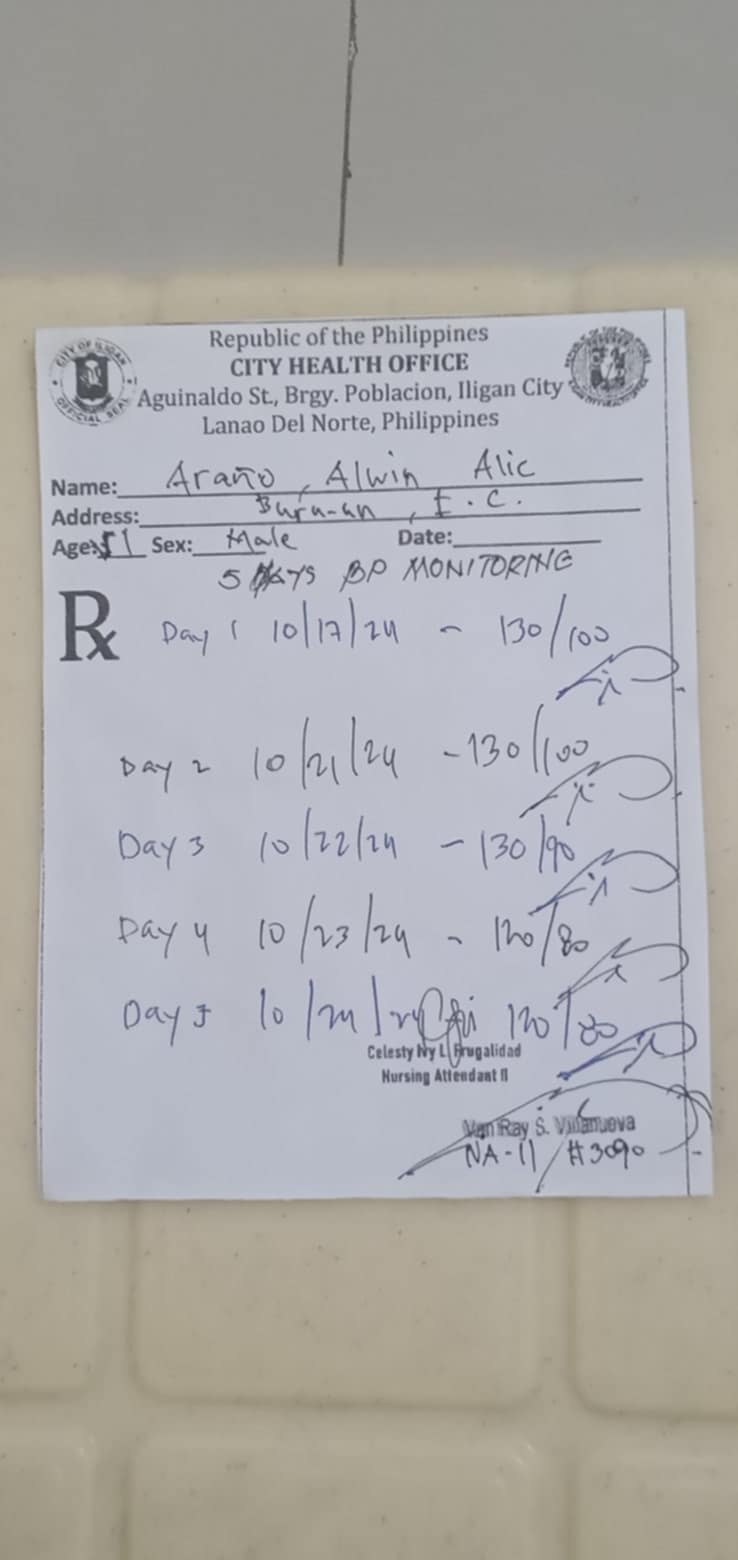 Republic of the Philippines
CITY HEALTH OFFICE
Aguinaldo St., Brgy. Poblacion, Iligan City
Lanao Del Norte, Philippines
CITY OF ILIGAN
OFFICIAL SEAL
Name: Araño, Alwin Alic
Address: Buru-un, I.C.
Age: 51 Sex: Male Date:
5 DAYS BP MONITORING
Rx Day 1 10/17/24 - 130/100
Day 2 10/21/24 - 130/100
Day 3 10/22/24 - 130/90
Day 4 10/23/24 - 120/80
Day 5 10/24/24 120/80
Celesty Ivy L. Frugalidad
Nursing Attendant II
Van Ray S. Villanueva
NA-II #3090